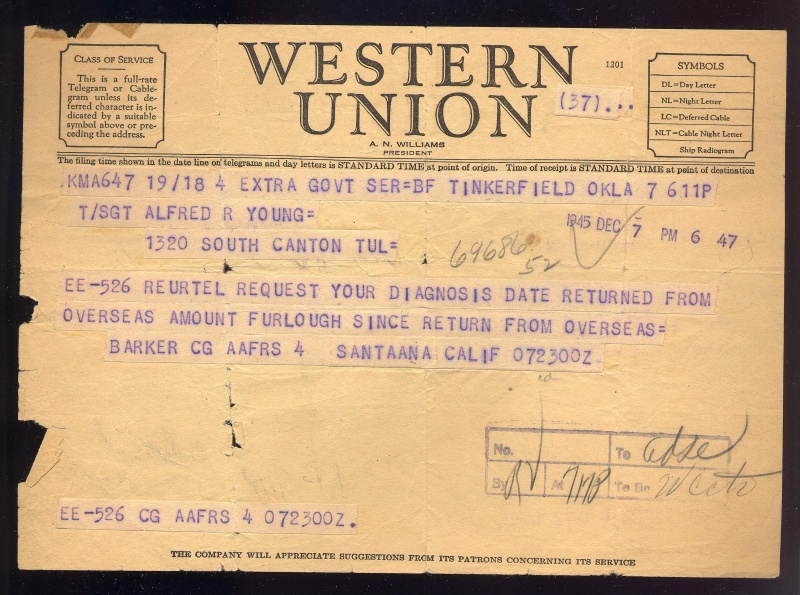 CLASS OF SERVICE
This is a full-rate
Telegram or Cable-
gram unless its de-
ferred character is in-
dicated by a suitable
symbol above or pre-
ceding the address.
WESTERN
UNION
A. N. WILLIAMS
PRESIDENT
1201
(37)...
SYMBOLS
DL=Day Letter
NL=Night Letter
LC=Deferred Cable
NLT=Cable Night Letter
Ship Radiogram
The filing time shown in the date line on telegrams and day letters is STANDARD TIME at point of origin. Time of receipt is STANDARD TIME at point of destination
.KMA647 19/18 4 EXTRA GOVT SER=BF TINKERFIELD OKLA 7 611P
T/SGT ALFRED R YOUNG=
1945 DEC 7 PM 6 47
1320 SOUTH CANTON TUL=
69686
52
EE-526 REURTEL REQUEST YOUR DIAGNOSIS DATE RETURNED FROM
OVERSEAS AMOUNT FURLOUGH SINCE RETURN FROM OVERSEAS=
BARKER CG AAFRS 4 SANTAANA CALIF 072300Z.
No. To
By At To Be
EE-526 CG AAFRS 4 072300Z.
THE COMPANY WILL APPRECIATE SUGGESTIONS FROM ITS PATRONS CONCERNING ITS SERVICE